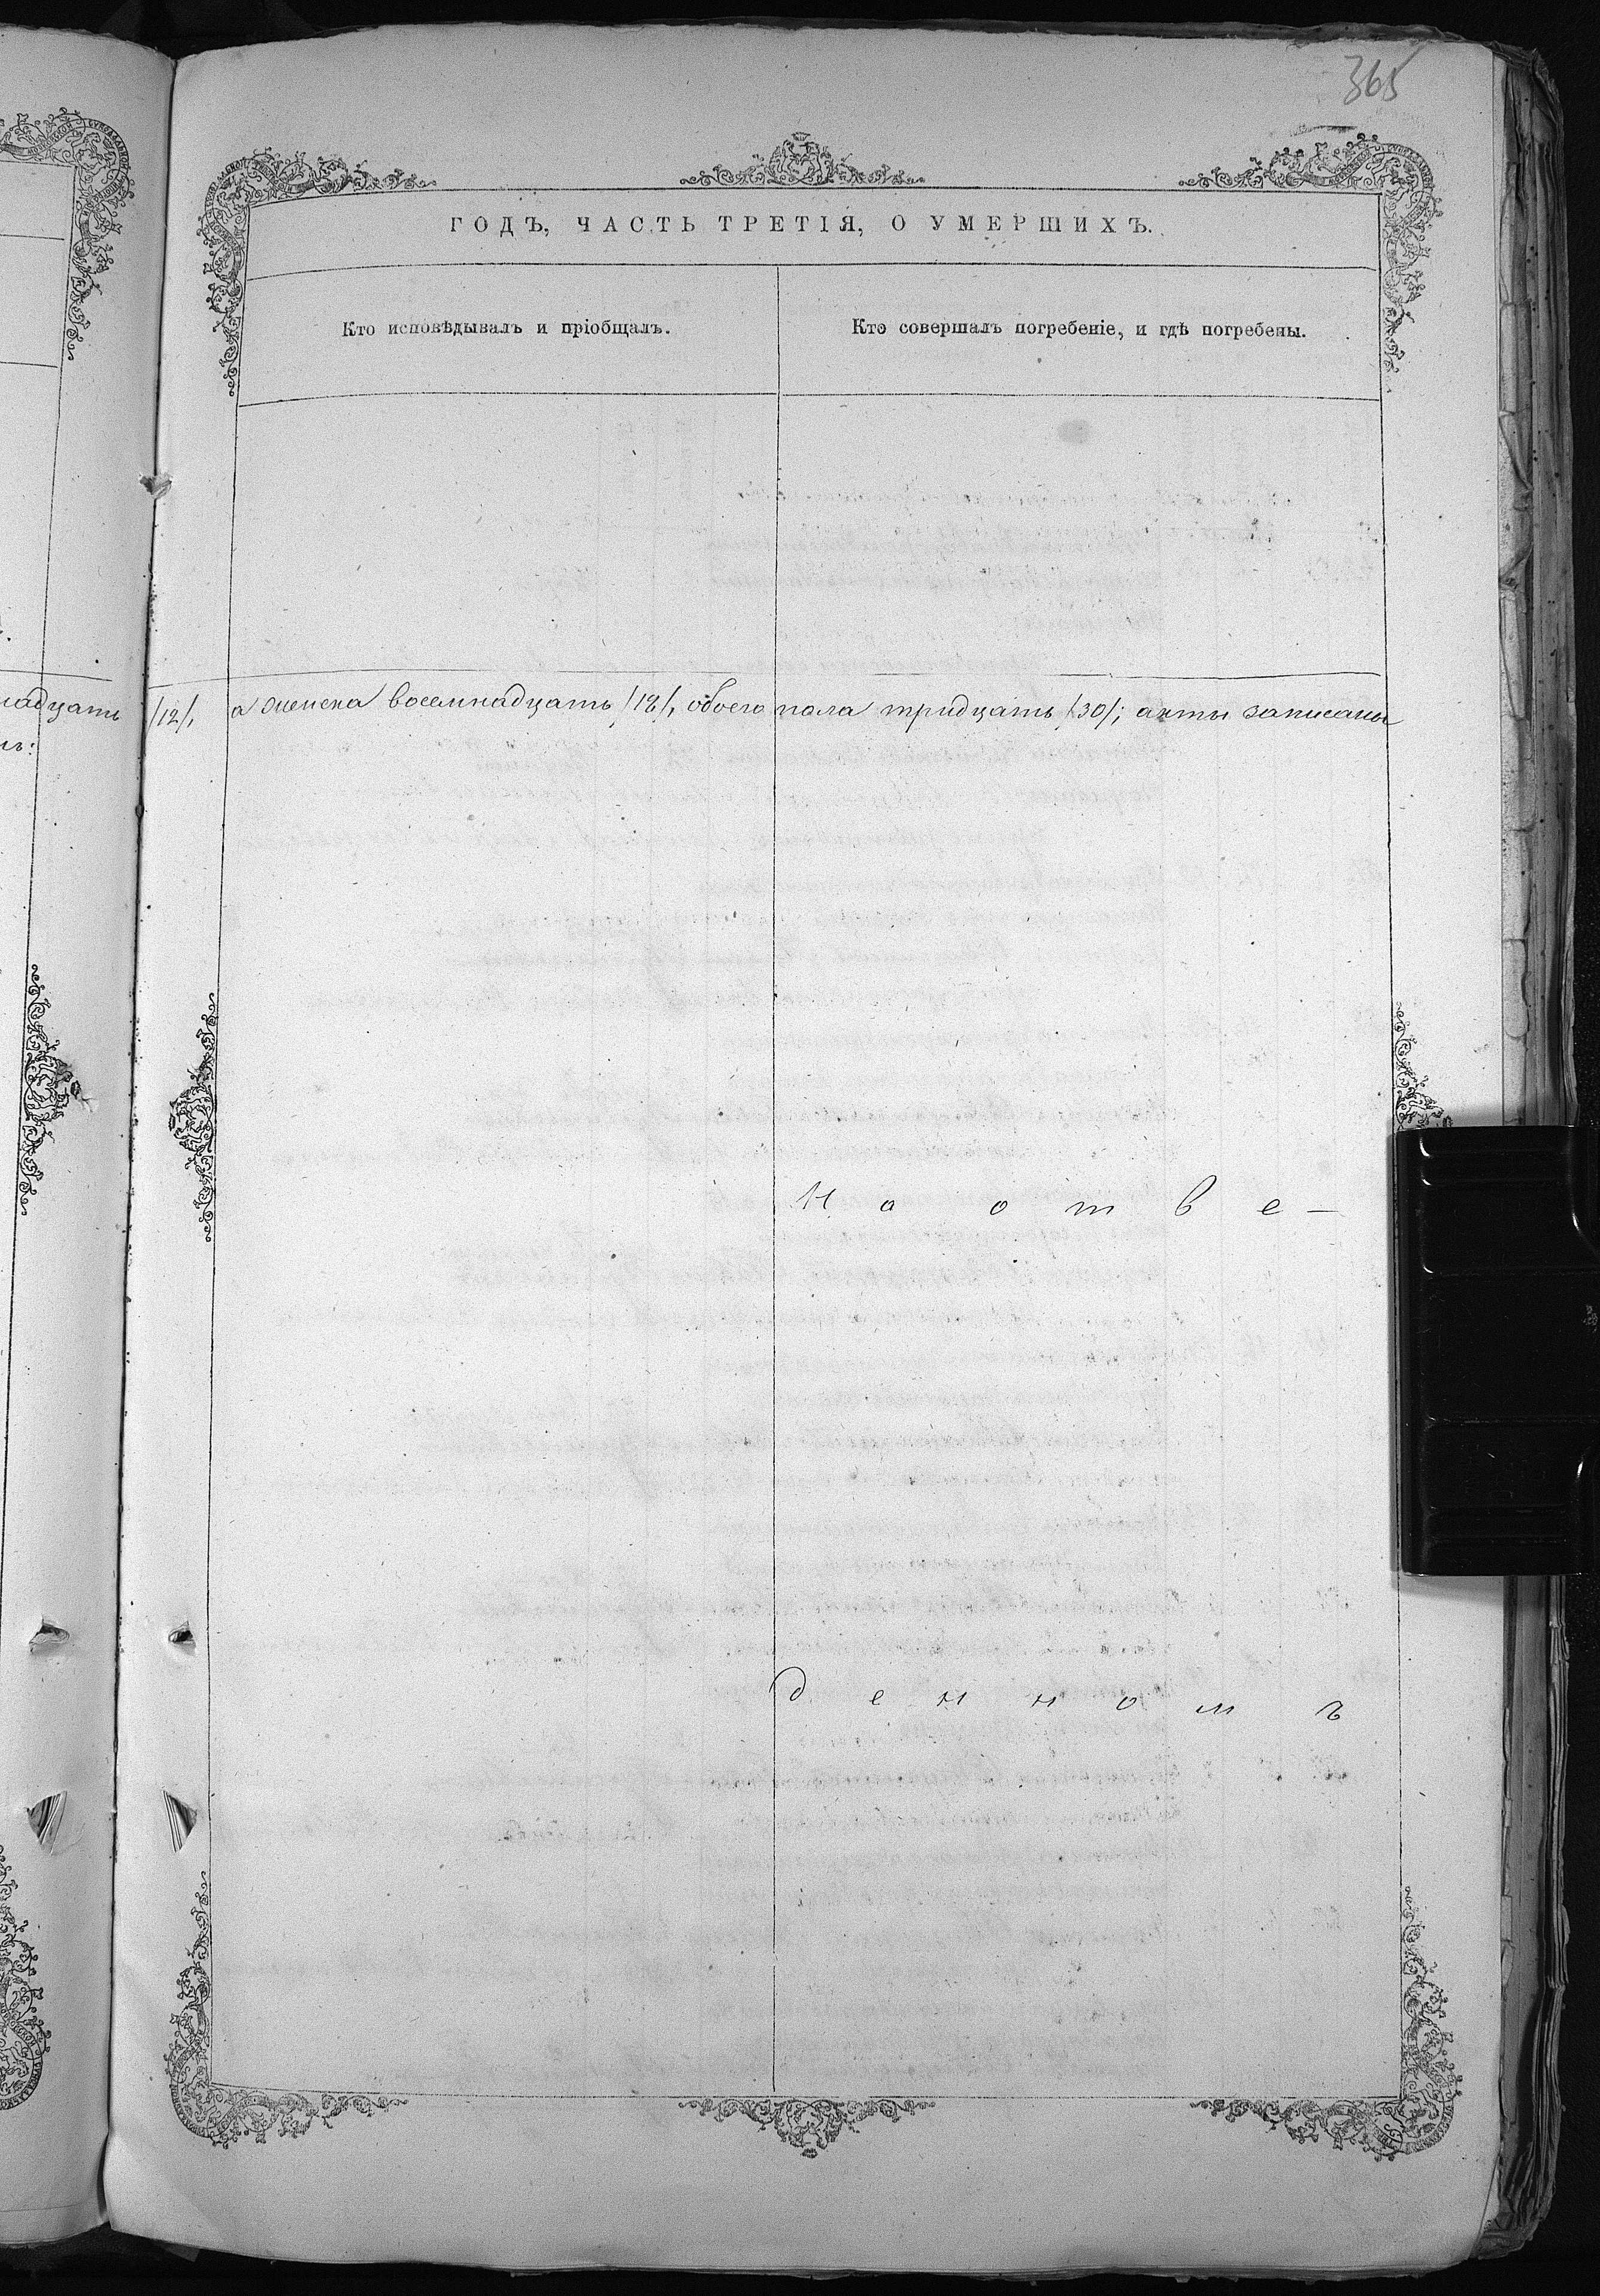 365
ГОДЪ, ЧАСТЬ ТРЕТІЯ, О УМЕРШИХЪ.
Кто исповѣдывалъ и пріобщалъ.
Кто совершалъ погребеніе, и гдѣ погребены.
надцать /12/, а женска восемнадцать /18/, обоего пола тридцать /30/; акты записаны
Н а о т в е –
д е н н о м ъ